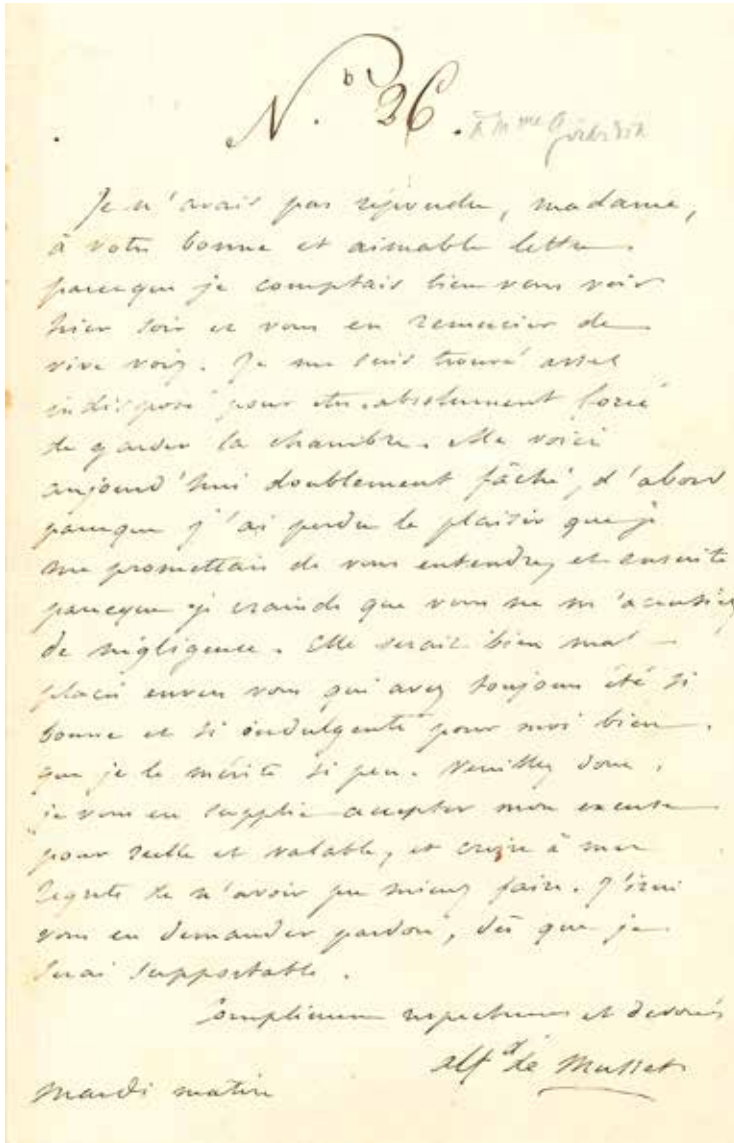 N.º 36. à Mme Girardin
Je n'avais pas répondu, madame,
à votre bonne et aimable lettre.
parceque je comptais bien vous voir
hier soir et vous en remercier de
vive voix. Je me suis trouvé assez
indisposé pour être absolument forcé
de garder la chambre. Me voici
aujourd'hui doublement fâché, d'abord
parceque j'ai perdu le plaisir que je
me promettais de vous entendre, et ensuite
parceque je crains que vous ne m'accusiez
de négligence. Elle serait bien mal
placée envers vous qui avez toujours été si
bonne et si indulgente pour moi bien
que je le mérite si peu. Veuillez donc,
je vous en supplie accepter mon excuse
pour réelle et valable, et croire à mes
regrets de n'avoir pu mieux faire. J'irai
vous en demander pardon, dès que je
serai supportable.
Compliments respectueux et dévoués
Alfd de Musset
mardi matin